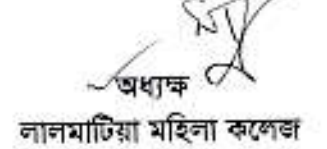 অধ্যক্ষ
লালমাটিয়া মহিলা কলেজ